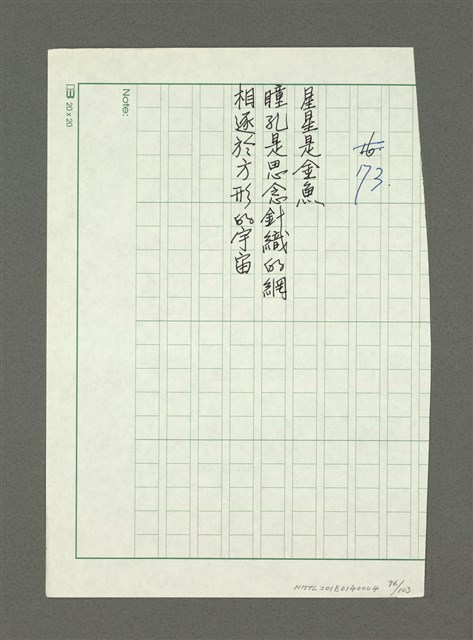 73.
星星是金魚
瞳孔是思念針織的網
相逐於方形的宇宙
Note:
20 x 20
NMTL20180140004 76/103